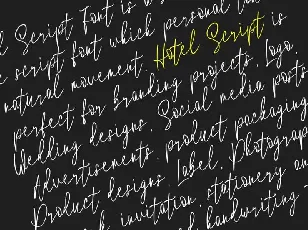 l Script Font is a
e script font which personal
natural movement. Hotel Script is
perfect for branding projects, Logo,
Wedding designs, Social media posts,
Advertisements, product packaging
Product designs, label, Photograp
invitation, stationery an
handwriting